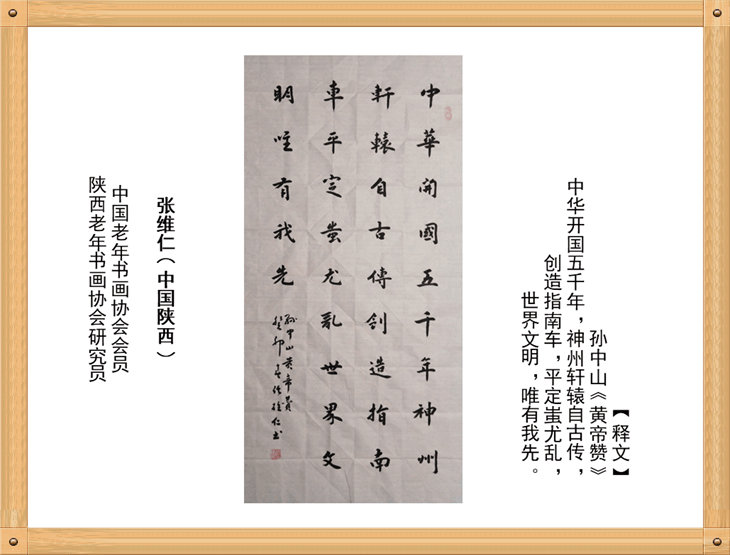 【释文】
孙中山《黄帝赞》
中华开国五千年，神州轩辕自古传，
创造指南车，平定蚩尤乱，
世界文明，唯有我先。
中華開國五千年神州
軒轅自古傳創造指南
車平定蚩尤亂世界文
明唯有我先
孙中山黄帝赞
癸卯
维仁书
张维仁（中国陕西）
中国老年书画协会会员
陕西老年书画协会研究员